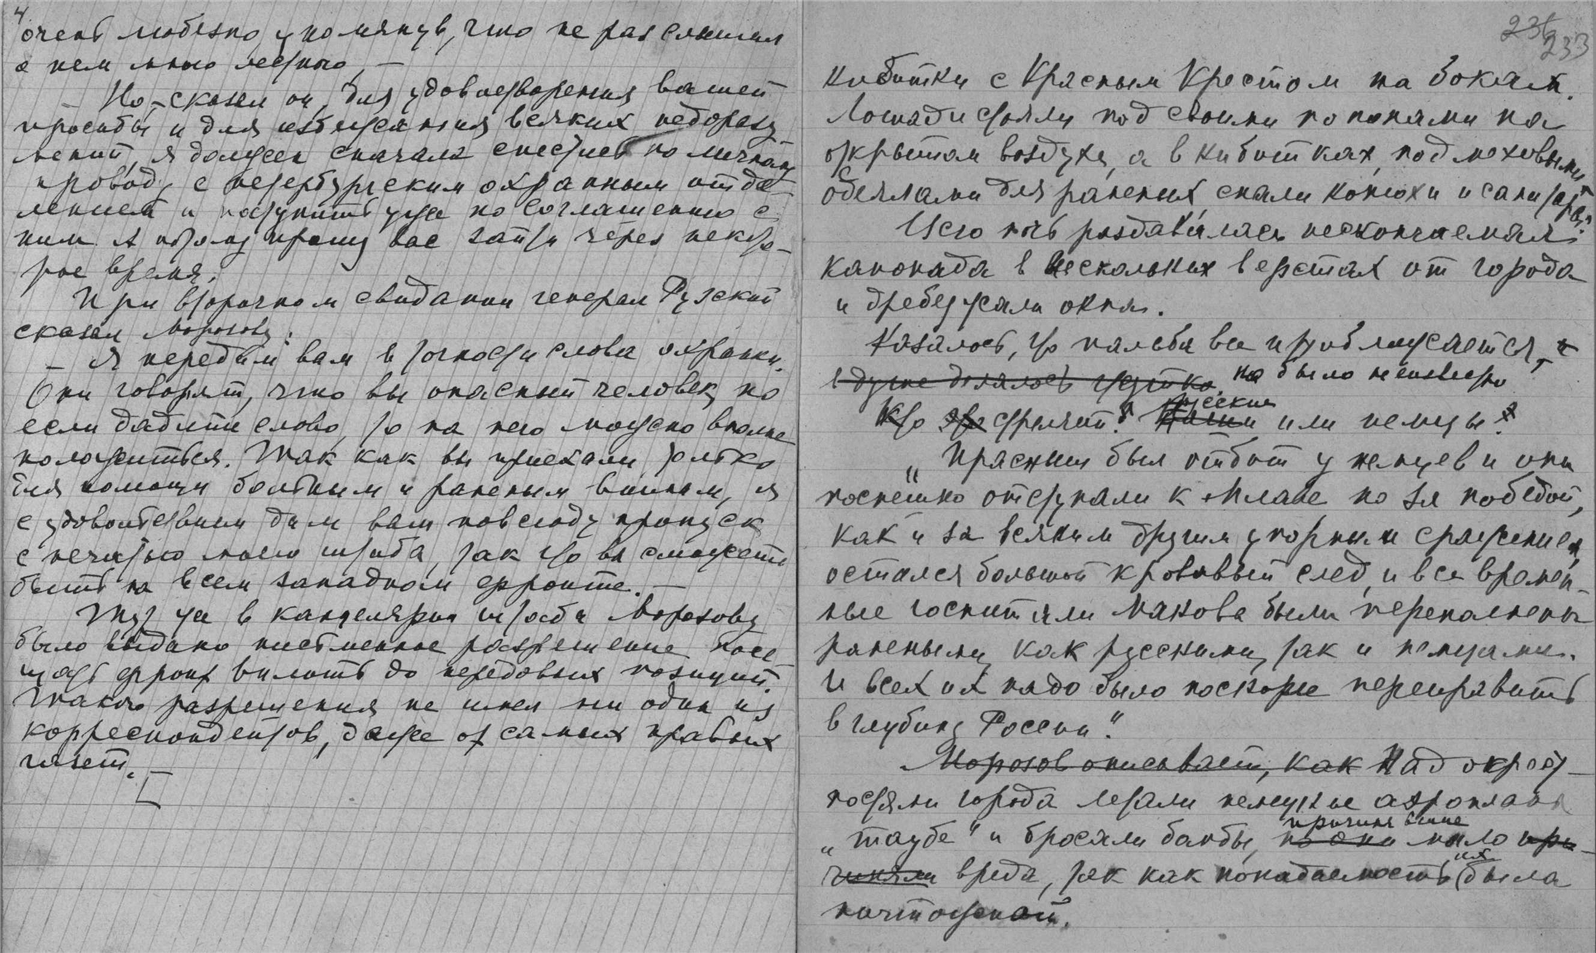 4
очень любезно упомянув, что не раз слышал
о нем много лестного, —
— Но, — сказал он, для удовлетворения вашей
просьбы и для избежания всяких недоразу
мений, я должен сначала снестись по личному
проводу с петербургским охранным отде
лением и поступить уже по соглашению с
ним. А потому прошу вас зайти через некото-
рое время.
При вторичном свидании генерал Рузский
сказал Морозову:
— Я передам вам в точности слова охранки.
Они говорят, что вы опасный человек, но
если дадите слово, то на него можно вполне
положиться. Так как вы приехали только
для помощи больным и раненым воинам, я
с удовольствием дам вам повсюду пропуск
с печатью моего штаба, так что вы сможете
быть на всем западном фронте. —
Тут же в канцелярии штаба Морозову
было выдано письменное разрешение посе
щать фронт вплоть до передовых позиций.
Такого разрешения не имел ни один из
корреспондентов, даже от самых правых
газет.
235
233
кибитки с Красным Крестом на боках.
Лошади стояли под своими попонами на
открытом воздухе, а в кибитках, под меховыми
одеялами для раненых, спали конюхи и санитары.
Всю ночь раздавалась нескончаемая
канонада в нескольких верстах от города
и дребезжали окна.
Казалось, что пальба все приближается, и
в душе делалось жутко. Но было неизвестно
Кто это стрелял? Наши русские или немцы?
„Прасныш был отбит у немцев и они
поспешно отступали к Млаве но за победой,
как и за всяким другим упорным сражением,
остался большой кровавый след, и все времен-
ные госпитали Макова были переполнены
ранеными, как русскими, так и немцами.
И всех их надо было поскорее переправить
в глубину России".
Морозов описывает, как Над окрест-
ностями города летали немецкие аэропланы
„таубе" и бросали бомбы, но они причиняя мало при-
чиняли вреда, так как попадаемость их была
ничтожной.